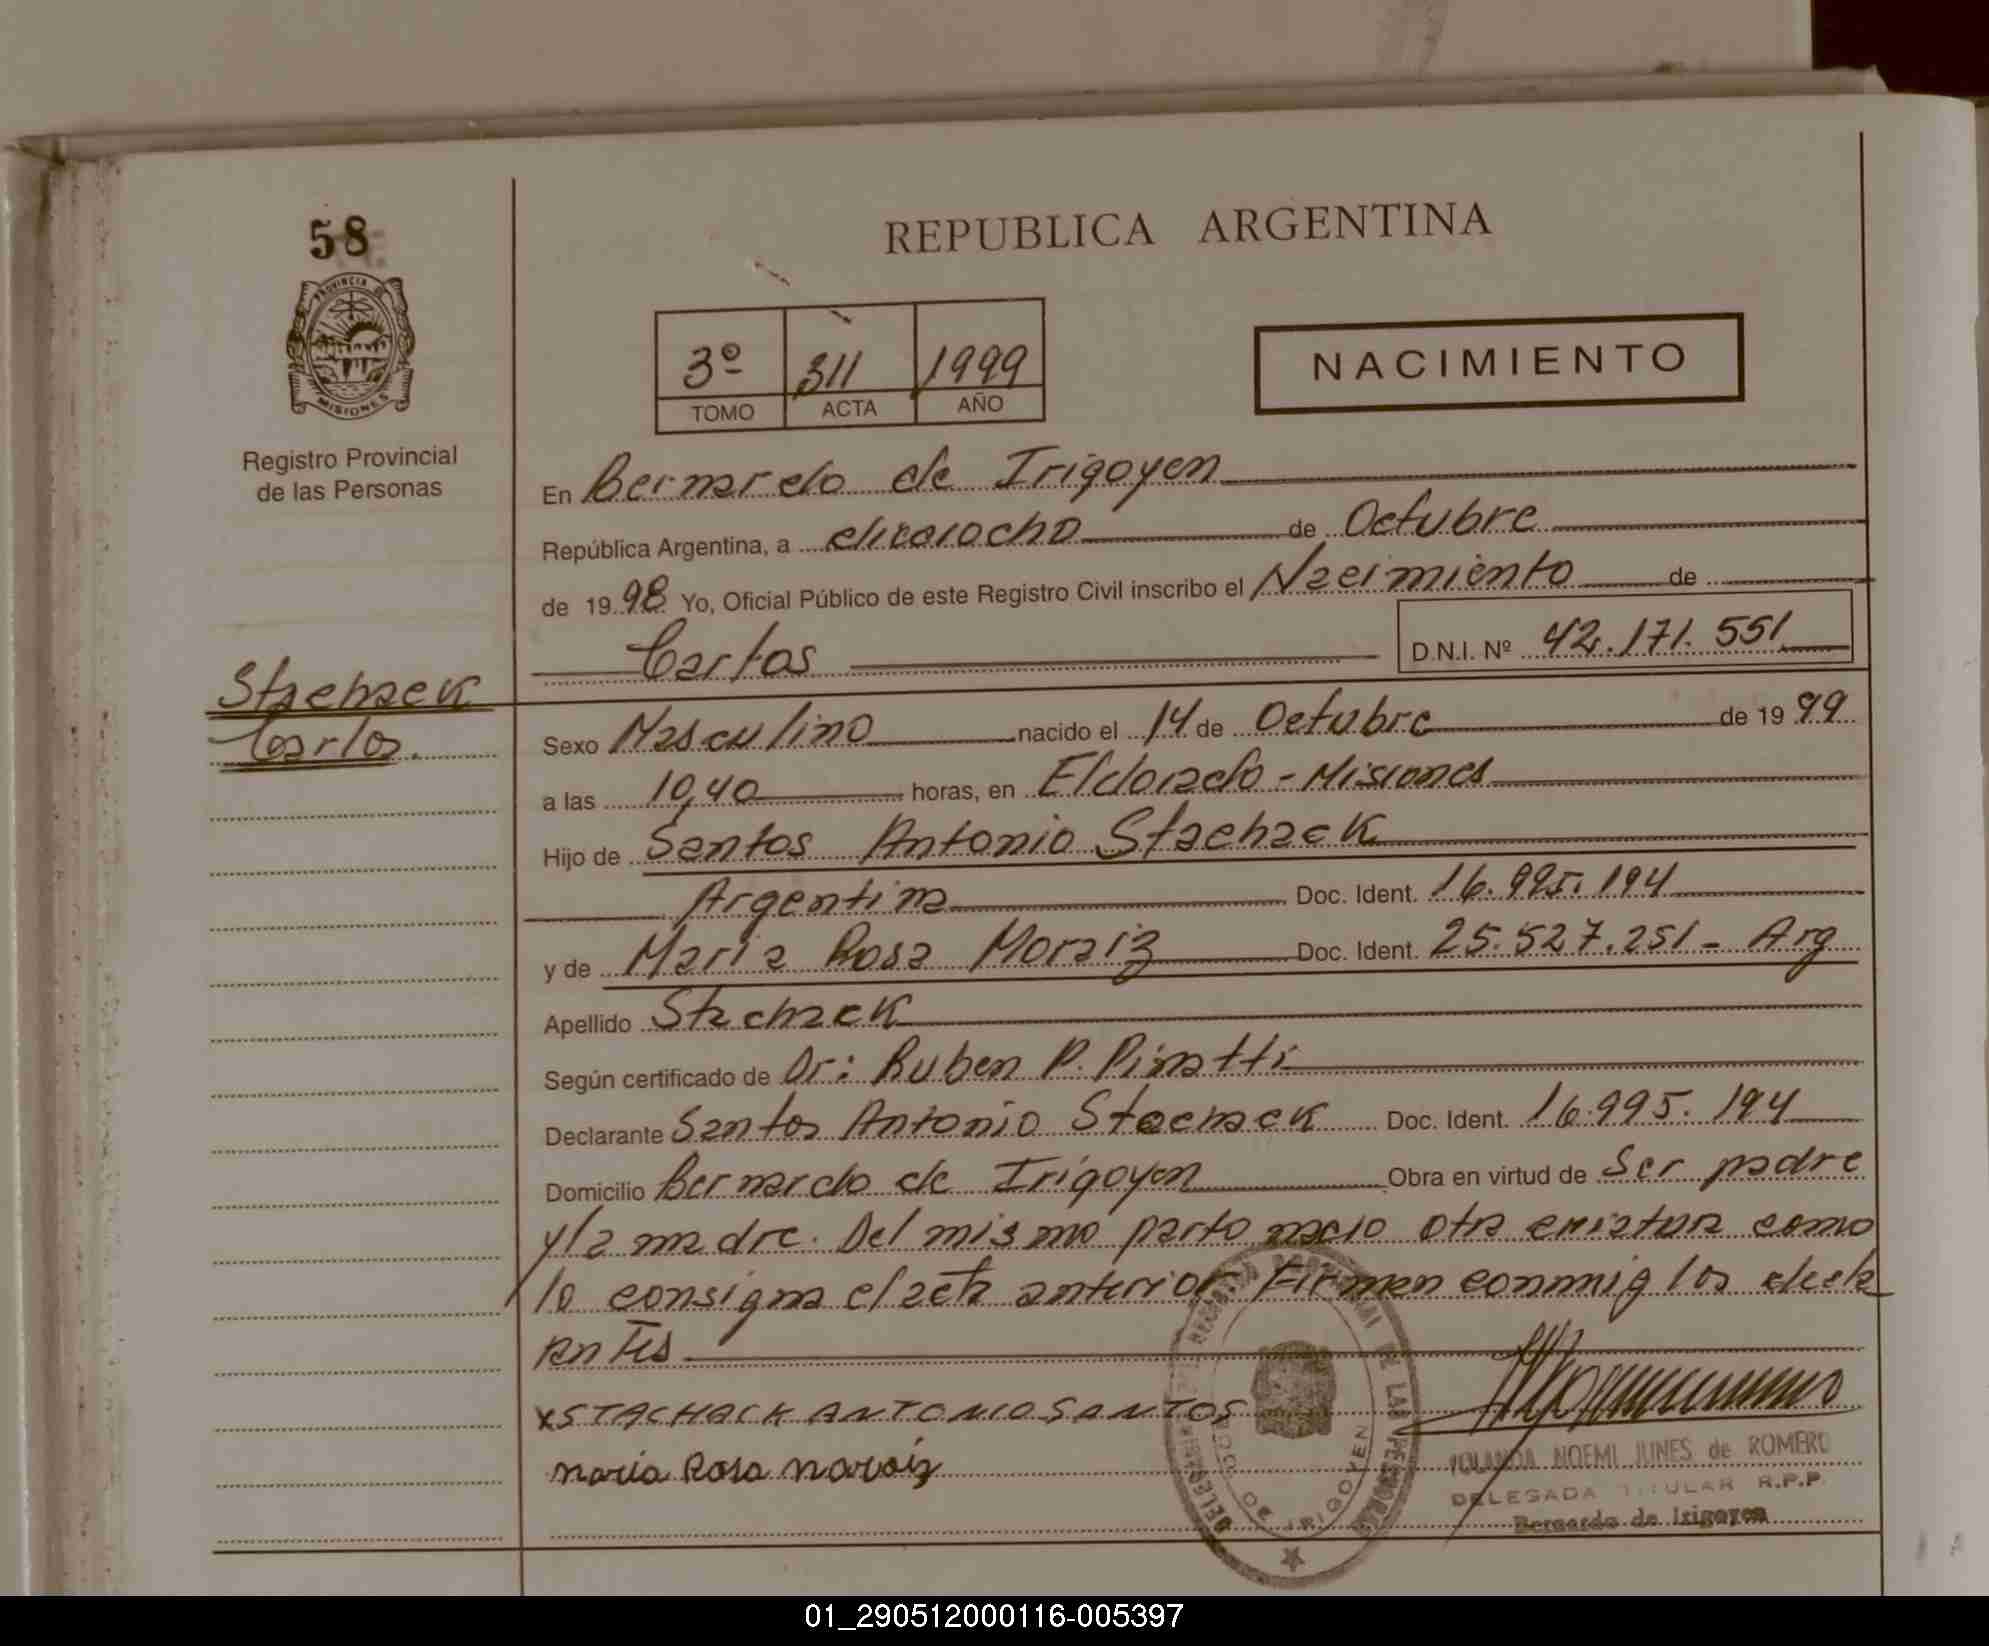 58
PROVINCIA DE
MISIONES
Registro Provincial
de las Personas
REPUBLICA ARGENTINA
3º 311 1999
TOMO ACTA AÑO
NACIMIENTO
En Bernardo de Irigoyen
República Argentina, a dieciocho de Octubre
de 19 98 Yo, Oficial Público de este Registro Civil inscribo el Nacimiento de
Carlos D.N.I. Nº 42.171.551
Stachack
Carlos.
Sexo Masculino nacido el 14 de Octubre de 19 99
a las 10,40 horas, en Eldorado - Misiones
Hijo de Santos Antonio Stachack
Argentina Doc. Ident. 16.995.194
y de Maria Rosa Moraiz Doc. Ident. 25.527.251 - Arg
Apellido Stachack
Según certificado de Dr: Ruben P. Pinatti
Declarante Santos Antonio Stachack Doc. Ident. 16.995.194
Domicilio Bernardo de Irigoyen Obra en virtud de Ser padre
y la madre. Del mismo parto nacio otra criatura como
lo consigna el acta anterior Firman conmig los decla
rantes
x STACHACK ANTONIO SANTOS
maria Rosa moraiz
DE LAS PERSONAS
DE IRIGOYEN
YOLANDA NOEMI JUNES de ROMERO
DELEGADA TITULAR R.P.P.
Bernardo de Irigoyen
01_290512000116-005397